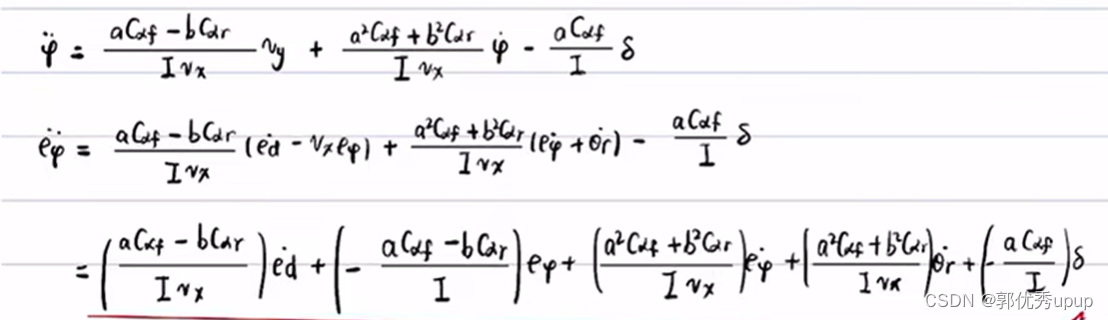 φ̈ = (aCαf − bCαr)/(I vx) vy + (a²Cαf + b²Cαr)/(I vx) φ̇ − aCαf/I δ
ëφ = (aCαf − bCαr)/(I vx) (ėd − vx eφ) + (a²Cαf + b²Cαr)/(I vx) (ėφ + θ̇r) − aCαf/I δ
= ((aCαf − bCαr)/(I vx)) ėd + (− (aCαf − bCαr)/I) eφ + ((a²Cαf + b²Cαr)/(I vx)) ėφ + ((a²Cαf + b²Cαr)/(I vx)) θ̇r + (− aCαf/I) δ
CSDN @郭优秀upup